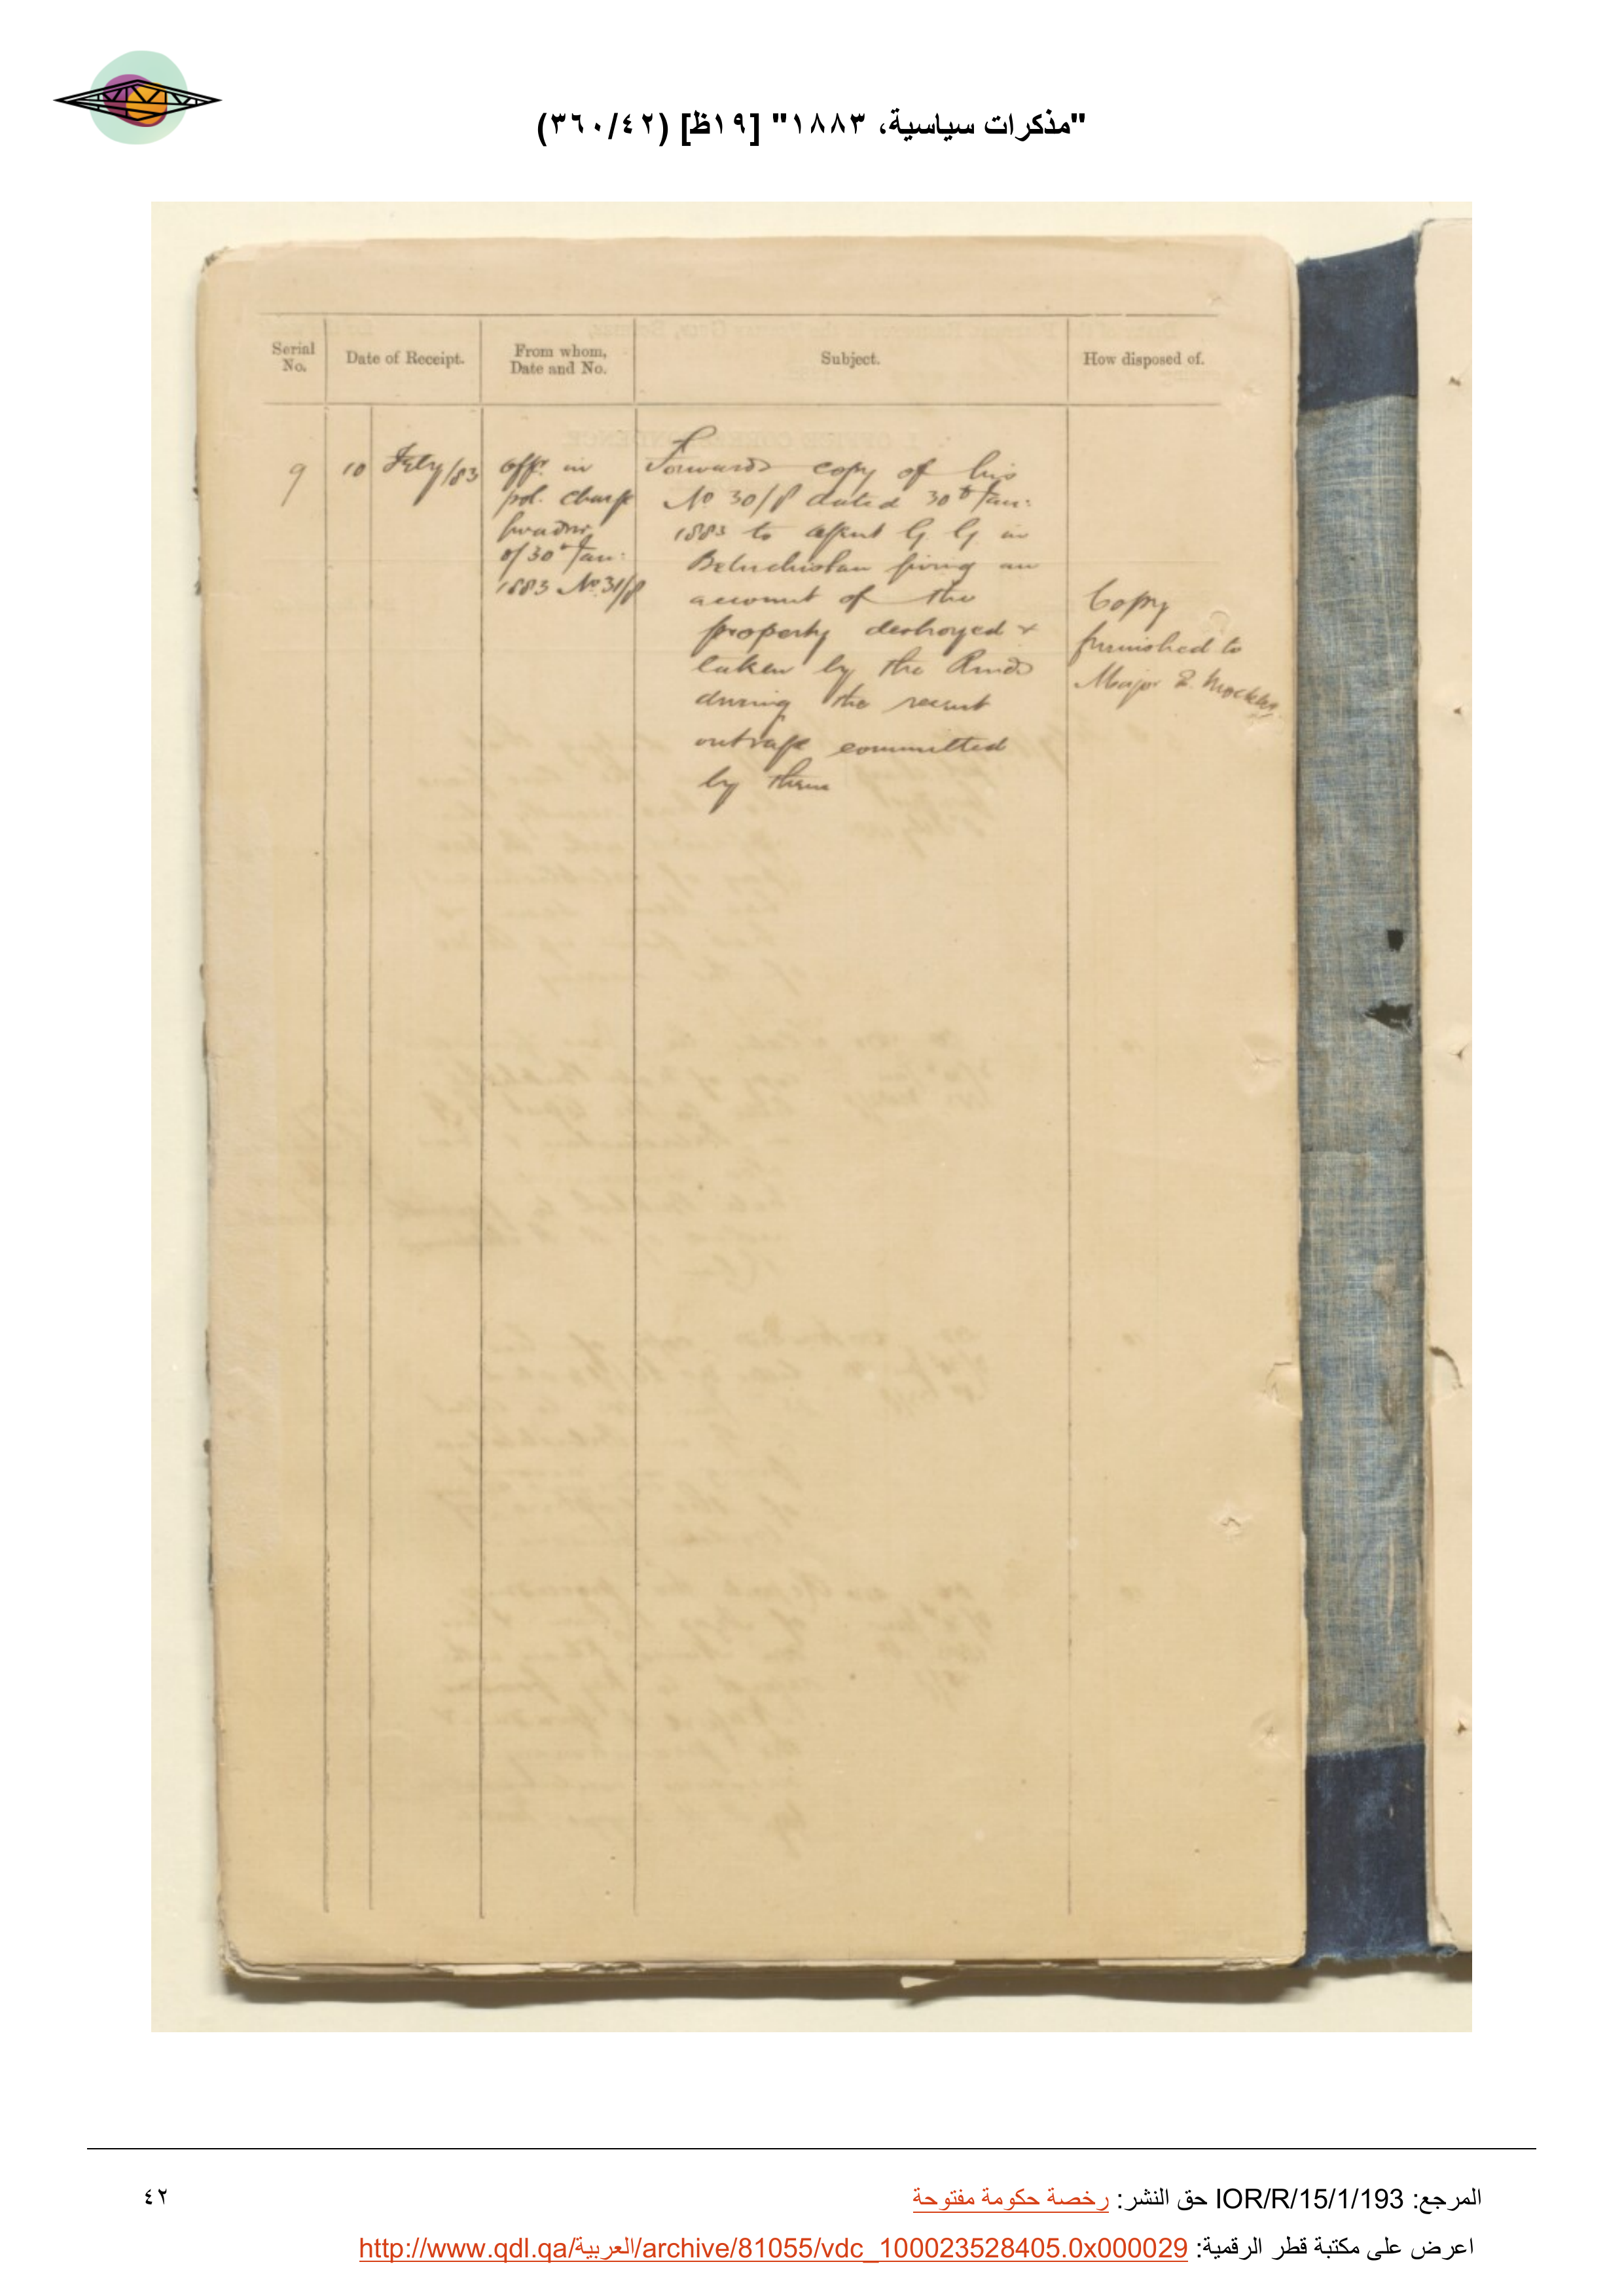 "مذكرات سياسية، ١٨٨٣" [١٩ظ] (٣٦٠/٤٢)
Serial No.
Date of Receipt.
From whom, Date and No.
Subject.
How disposed of.
9
10 Feby/83
Offr. in
pol. charge
Gwadur
of 30th Jan:
1883 No. 31/8
Forwards copy of his
No 30/8 dated 30th Jan:
1883 to Agent G. G. in
Beluchistan giving an
account of the
property destroyed &
taken by the Rinds
during the recent
outrage committed
by them
Copy
furnished to
Major E. Mockler
المرجع: IOR/R/15/1/193 حق النشر: رخصة حكومة مفتوحة
٤٢
اعرض على مكتبة قطر الرقمية: http://www.qdl.qa/العربية/archive/81055/vdc_100023528405.0x000029